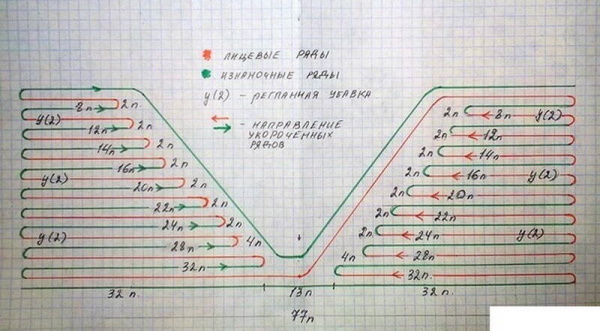 ЛИЦЕВЫЕ РЯДЫ
ИЗНАНОЧНЫЕ РЯДЫ
у(2) - РЕГЛАННАЯ УБАВКА
- НАПРАВЛЕНИЕ
УКОРОЧЕННЫХ
РЯДОВ
8п 2п
у(2)
12п 2п
14п 2п
16п 2п
у(2)
20п 2п
22п 2п
24п 2п
у(2)
28п 4п
32п
2п 8п у(2)
2п 12п
2п 14п
2п 16п у(2)
2п 20п
2п 22п
2п 24п у(2)
4п 28п
32п
32 п. 13п 32 п.
77п